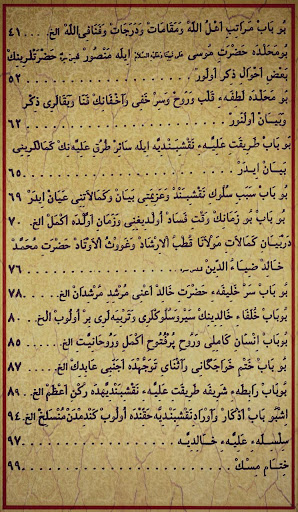 بُو بَابْ مَرَاتِبِ اَهْلُ اللّٰهْ وَمَقَامَاتْ وَدَرَجَاتْ وَفَنَافِى اللّٰهْ الخ. . . . . ٤١
بُومَحَلْدَه حَضْرَتِ مُوسَى ايله مَنْصُورْ حَضْرَتْلَرِينِكْ
بَعْضِ اَحْوَالْ ذِكْرْ اولُورْ . . . . . ٥٢
بُو مَحَلْدَه لَطَفِهءِ قَلْبْ وَرُوحْ وَسِرْ خَفِى وَاَخْفَانِكْ فَنَا وَبَقَالَرِى ذِكْرْ
وَبَيَانْ اولُنُورْ . . . . . ٦٢
بُو بَابْ طَرِيقَتِ عَلِيَّهءِ نَقْشِبَنْدِيَّه ايله سَائِرْ طُرُقِ عَلِيَّه نِكْ كَمَالَاتْرِينِى
بَيَانْ ايدَرْ . . . . . ٦٥
بُو بَابْ سَبَبِ سُلُوكِ نَقْشِبَنْدْ وَعَزِيمَتِى بَيَانْ وَكَمَالَاتْنِى عَيَانْ ايدَرْ ٦٩
بُو بَابْ بُو زَمَانِكْ رِقَّتْ فَسَادْ اولْدِيغِنِى وَزَمَانِ اولْدَه اَكْمَلْ الخ. ٧٠
دَرْبَيَانِ كَمَالَاتِ مَوْلَانَا قُطْبِ الْاِرْشَادْ وَغَوْثُ الْاَوْتَادْ حَضْرَتِ مُحَمَّدْ
خَالِدْ ضِيَاءُ الدِّينْ . . . . . ٧٦
بُو بَابْ سَرْ خَلِيفَهءِ حَضْرَتِ خَالِدْ اَعْنِى مُرْشِدِ مُرْشِدَانْ الخ. . ٧٨
بُوبَابْ خُلَفَاءِ خَالِدِينِكْ سَيْرُوسُلُوكْلَرِى وَتَرْبِيَه لَرِى بِرْ اولُوبْ الخ. ٨٠
بُوبَابْ اِنْسَانِ كَامِلِى وَرُوحِ پُرْفُتُوحِ اَكْمَلْ وَرُوحَانِيَّتْ الخ. . ٨٥
بُو بَابْ خَتْمِ خَوَاجَگَانِى وَاَثْنَاىِ تَوَجُّهْدَه اَجْنَبِى عَابِدِكْ الخ. . ٨٧
بُوبَابْ رَابِطَهءِ شَرِيفَه طَرِيقَتِ عَلِيَّهءِ نَقْشِبَنْدِيَّهدَه رُكْنِ اَعْظَمْ الخ. ٨٩
اِشْبُو بَابْ اَذْكَارْ وَاَوْرَادِ نَقْشِبَنْدِيَّه حَقِّنْدَه اولُوبْ كَنْدِمْدَنْ مُنْسَلِخْ الخ. ٩٤
سِلْسِلَهءِ عَلِيَّهءِ خَالِدِيَّه . . . . . ٩٧
خِتَامِ مِسْكْ . . . . . ٩٩